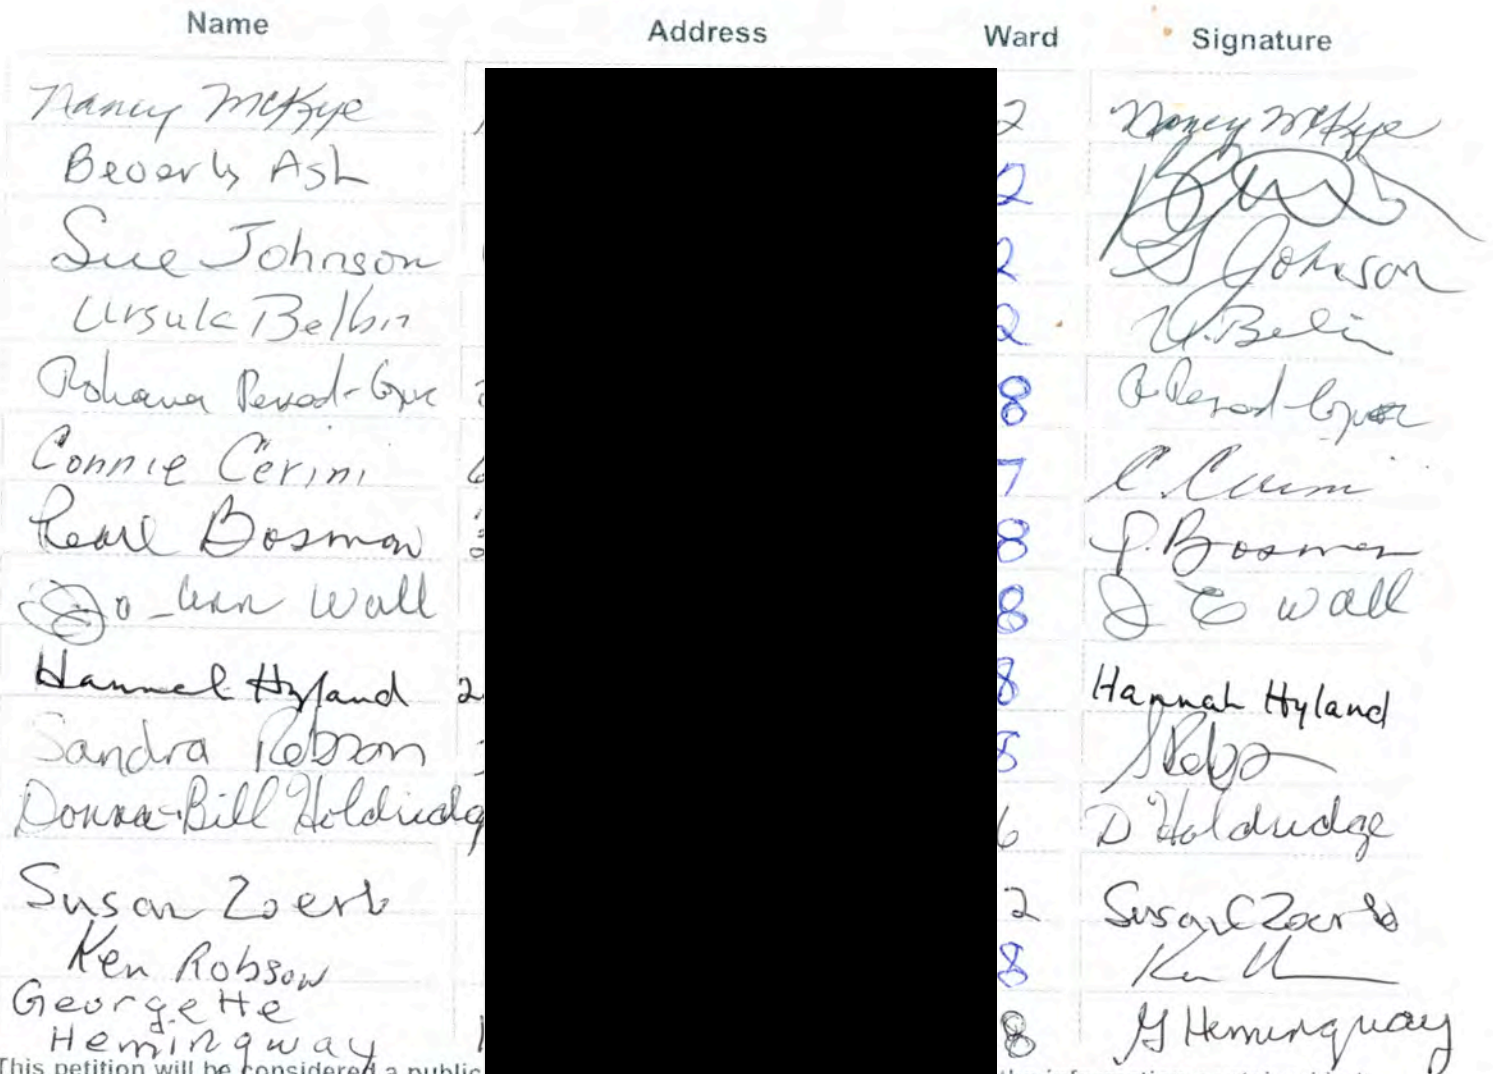 Name Address Ward Signature
Nancy McKye 2 Nancy McKye
Beverly Ash 2
Sue Johnson 2 S Johnson
Ursula Belbin 2 U. Belin
8
Connie Cerini 7 C. Cerini
Pearl Bosman 8 P. Bosman
Jo-Ann Wall 8 J E Wall
Hannah Hyland 2 8 Hannah Hyland
Sandra Robson 8 S Robson
Donna-Bill Holdridg 6 D Holdridge
Susan Zoerb 2 Susan C Zoerb
Ken Robson 8 Ken
Georgette
Hemingway 8 G Hemingway
This petition will be considered a public